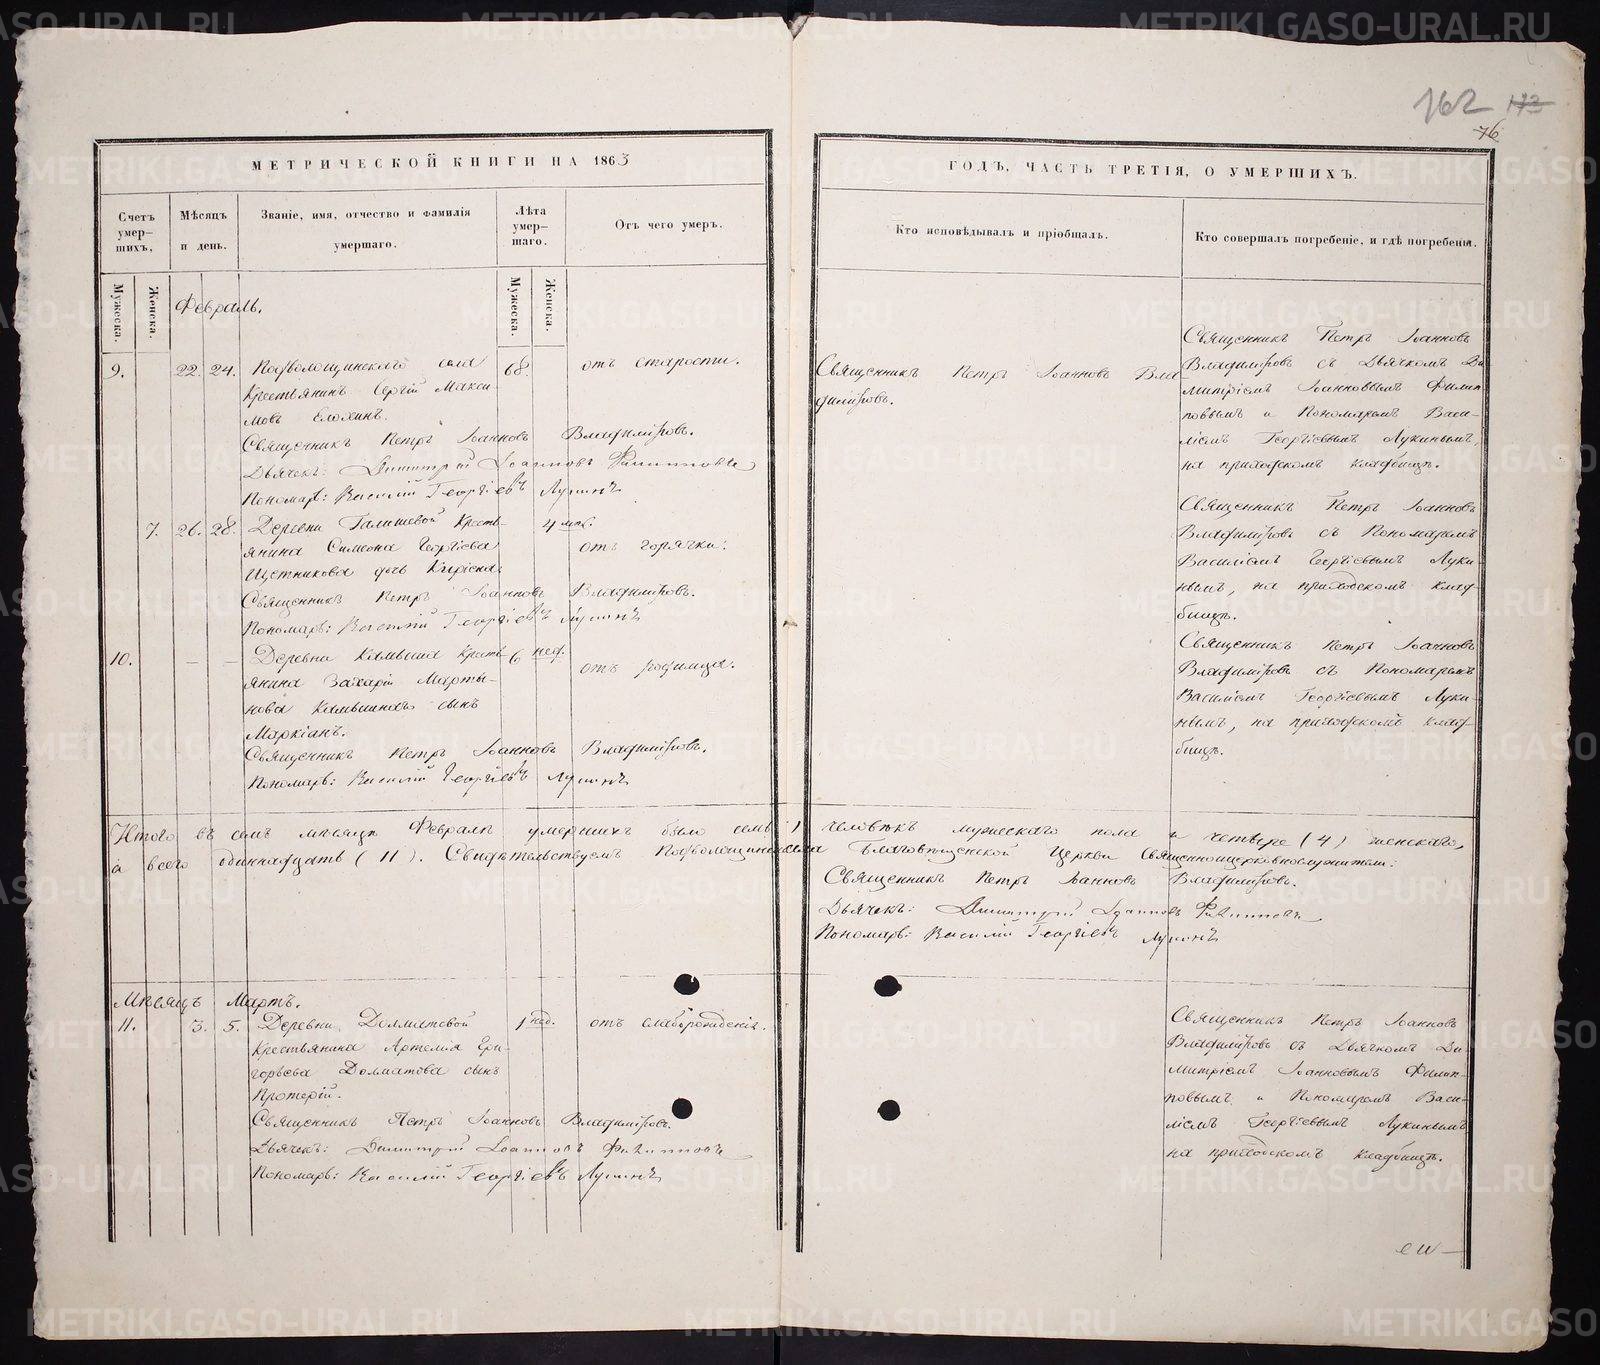 METRIKI.GASO-URAL.RU
162 173
76
МЕТРИЧЕСКОЙ КНИГИ НА 1863
ГОДЪ, ЧАСТЬ ТРЕТІЯ, О УМЕРШИХЪ.
Счетъ умер-шихъ.
Мѣсяцъ и день.
Званіе, имя, отчество и фамилія умершаго.
Лѣта умер-шаго.
Отъ чего умеръ.
Кто исповѣдывалъ и пріобщалъ.
Кто совершалъ погребеніе, и гдѣ погребены.
Мужеска. Женска.
Мужеска. Женска.
Февраль.
9. 22. 24. Подволошинскаго села 68. отъ старости.
Крестьянинъ Сергій Макси-
мовъ Елохинъ.
Священникъ Петръ Іоанновъ Владиміровъ.
Дьячекъ: Димитрій Іоанновъ Филипповъ
Пономарь: Василій Георгіевъ Лукинъ
Священникъ Петръ Іоанновъ Вла-
диміровъ.
Священникъ Петръ Іоанновъ
Владиміровъ съ Дьячкомъ Ди-
митріемъ Іоанновымъ Филип-
повымъ и Пономаремъ Васи-
ліемъ Георгіевымъ Лукинымъ,
на приходскомъ кладбищѣ.
7. 26. 28. Деревни Галишевой Кресть- 4 мѣс.
янина Симеона Георгіева отъ горячки.
Щетникова дочь
Священникъ Петръ Іоанновъ Владиміровъ.
Пономарь: Василій Георгіевъ Лукинъ
Священникъ Петръ Іоанновъ
Владиміровъ съ Пономаремъ
Василіемъ Георгіевымъ Луки-
нымъ, на приходскомъ клад-
бищѣ.
10. — — Деревни Кресть- 6 нед.
янина Захарія Марты- отъ родимца.
нова сынъ
Маркіанъ.
Священникъ Петръ Іоанновъ Владиміровъ.
Пономарь: Василій Георгіевъ Лукинъ
Священникъ Петръ Іоанновъ
Владиміровъ съ Пономаремъ
Василіемъ Георгіевымъ Луки-
нымъ, на приходскомъ клад-
бищѣ.
Итого въ семъ мѣсяцѣ Февралѣ умершихъ было семь человѣкъ мужескаго пола и четверо (4) женскаго,
а всего одиннадцать (11). Свидѣтельствуемъ Подволошинскаго села Благовѣщенской Церкви Священноицерковнослужители:
Священникъ Петръ Іоанновъ Владиміровъ.
Дьячекъ: Димитрій Іоанновъ Филипповъ
Пономарь: Василій Георгіевъ Лукинъ
Мѣсяцъ Мартъ.
11. 3. 5. Деревни Долматовой 1 нед. отъ слаборожденія.
Крестьянина Артемія Гри-
горьева Долматова сынъ
Протерій.
Священникъ Петръ Іоанновъ Владиміровъ.
Дьячекъ: Димитрій Іоанновъ Филипповъ
Пономарь: Василій Георгіевъ Лукинъ
Священникъ Петръ Іоанновъ
Владиміровъ съ Дьячкомъ Ди-
митріемъ Іоанновымъ Филип-
повымъ и Пономаремъ Васи-
ліемъ Георгіевымъ Лукинымъ
на приходскомъ кладбищѣ.